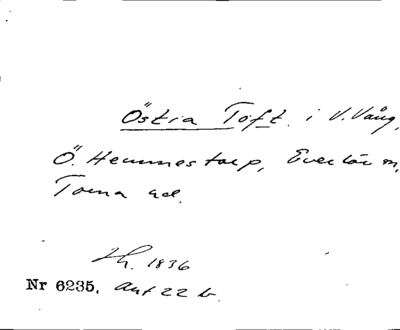 Östra Toft i V. Vång,
Ö. Hemmestorp, Everlöv sn,
Torna hd.
1836
Nr 6235, Akt 22 b.